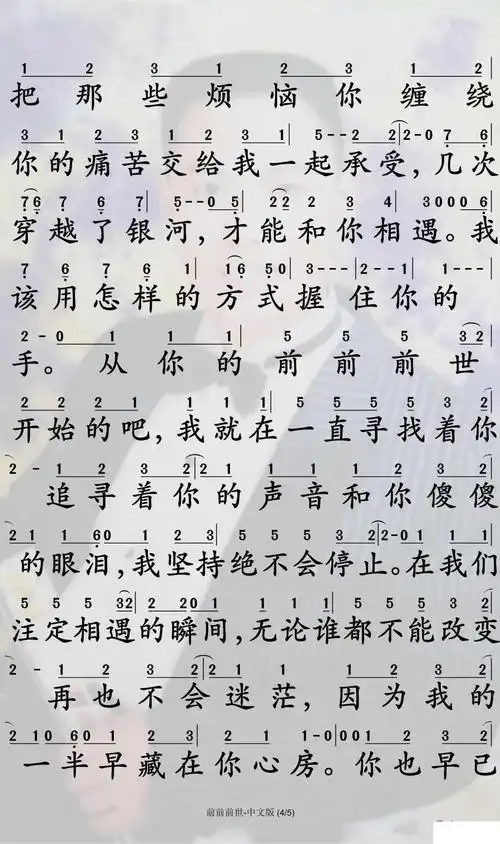 1 2 3 1 2 3 1 2
把那些烦恼你缠绕
3 1 2 3 1 2 3 1 5--2 2--0 7 6
你的痛苦交给我一起承受,几次
76 7 6 7 5--0 5 22 2 3 4 3000 6
穿越了银河,才能和你相遇。我
7 6 7 6 1 16 50 3--- 2--- 1---
该用怎样的方式握住你的
2-0 1 1 1 5 5 5 32
手。从你的前前前世
2 2 2 2 1 1 1 5 5 5 5 3 2
开始的吧,我就在一直寻找着你
2- 1 2 3 2 201 1 1 1 2 3 2
追寻着你的声音和你傻傻
2 1 1 60 1 2 3 5 5 5 5 3 2 2-01 1 1
的眼泪,我坚持绝不会停止。在我们
5 5 5 32 2 201 1 1 1 5 5 5 3 2
注定相遇的瞬间,无论谁都不能改变
2- 1 2 3 2 201 1 2 3 2
再也不会迷茫,因为我的
210 60 1 2 3 2 1 1-0 001 1 1 2
一半早藏在你心房。你也早已
前前前世-中文版 (4/5)